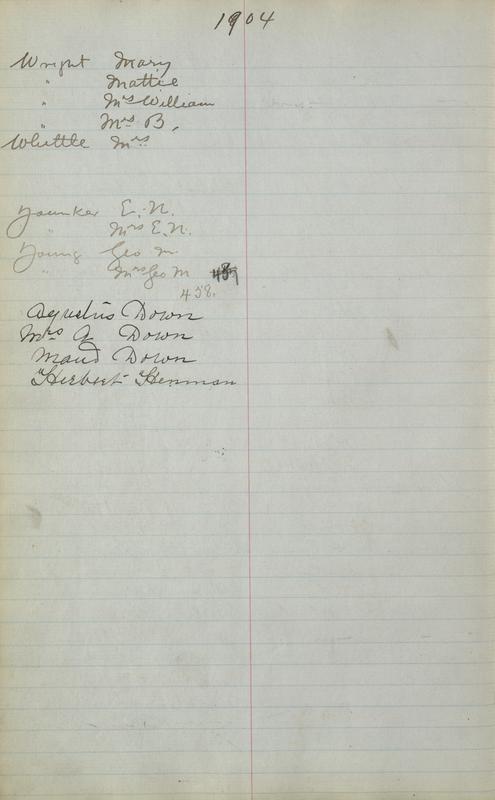 1904
Wright Mary
" Mattie
" Mrs William
" Mrs B.
Whittle Mrs
Younker E. N.
" Mrs E. N.
Young Geo M
" Mrs Geo M
458.
Down
Mrs A Down
Maud Down
Herbert Henman